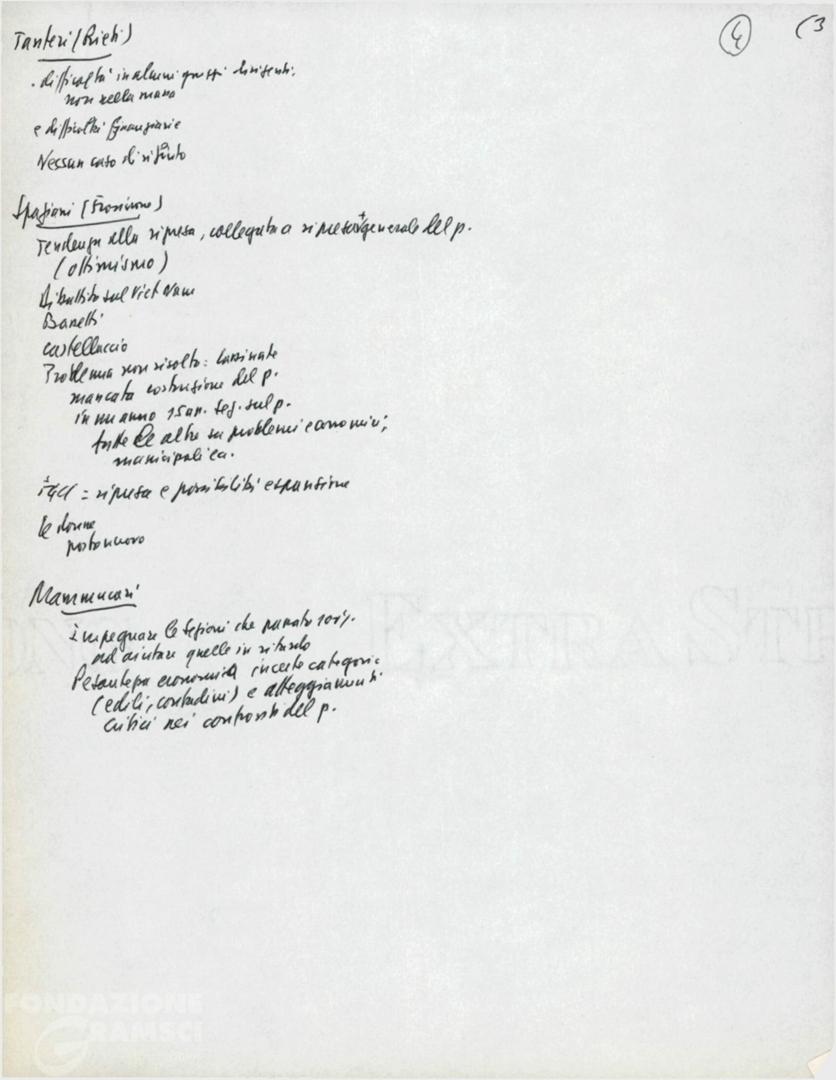 4
(3
Tanteri (Rieti)
. difficoltà in alcuni gruppi dirigenti,
non nella massa
e difficoltà finanziarie
Nessun caso di rifiuto
Spaziani (Frosinone)
Tendenza alla ripresa, collegata a ripresa generale del p.
(ottimismo)
Dibattito sul Viet Nam
Castelluccio
Problema non risolto: Cassinate
mancata costruzione del p.
in un anno 1 san. seg. sul p.
tutte le altre su problemi economici,
municipali ecc.
FGCI = ripresa e possibilità espansione
le donne
Mammucari
impegnare le sezioni che passato 100%
ad aiutare quelle in ritardo
Pesantezza economica in certe categorie
(edili, contadini) e atteggiamenti
critici nei confronti del p.
EXTRA ST
FONDAZIONE
GRAMSCI